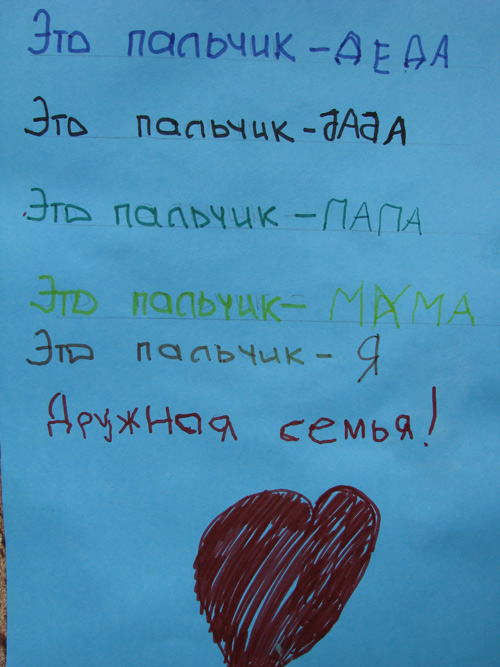 Это пальчик - ДЕДА
Это пальчик - дАдА
Это пальчик - ПАПА
Это пальчик - МАМА
Это пальчик - Я
Дружная семья!